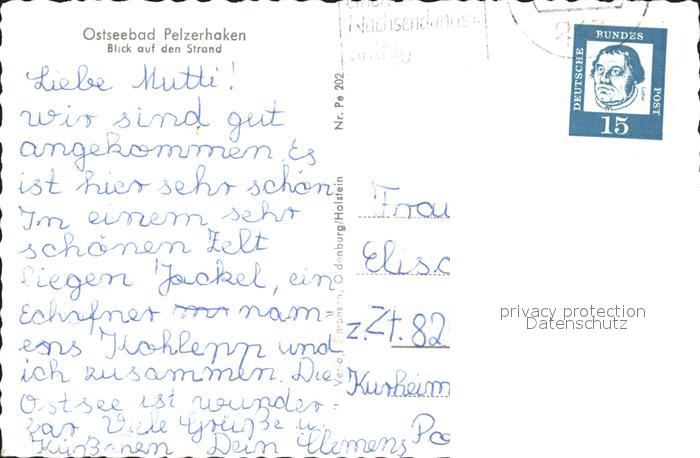 Ostseebad Pelzerhaken
Blick auf den Strand
Nachsendungs=
Liebe Mutti!
wir sind gut
angekommen. Es
ist hier sehr schön.
Im einem sehr
schönen Zelt
liegen Jackel, ein
nam=
ens Kohlepp und
ich zusammen. Die
Ostsee ist wunder=
bar Viele Grüße u.
Küßchen Dein Clemens
Nr. Pe 202
Simonsen, Oldenburg/Holstein
DEUTSCHE BUNDES POST
Luther
15
Frau
Elis
z. Zt. 82
Kurheim
privacy protection
Datenschutz